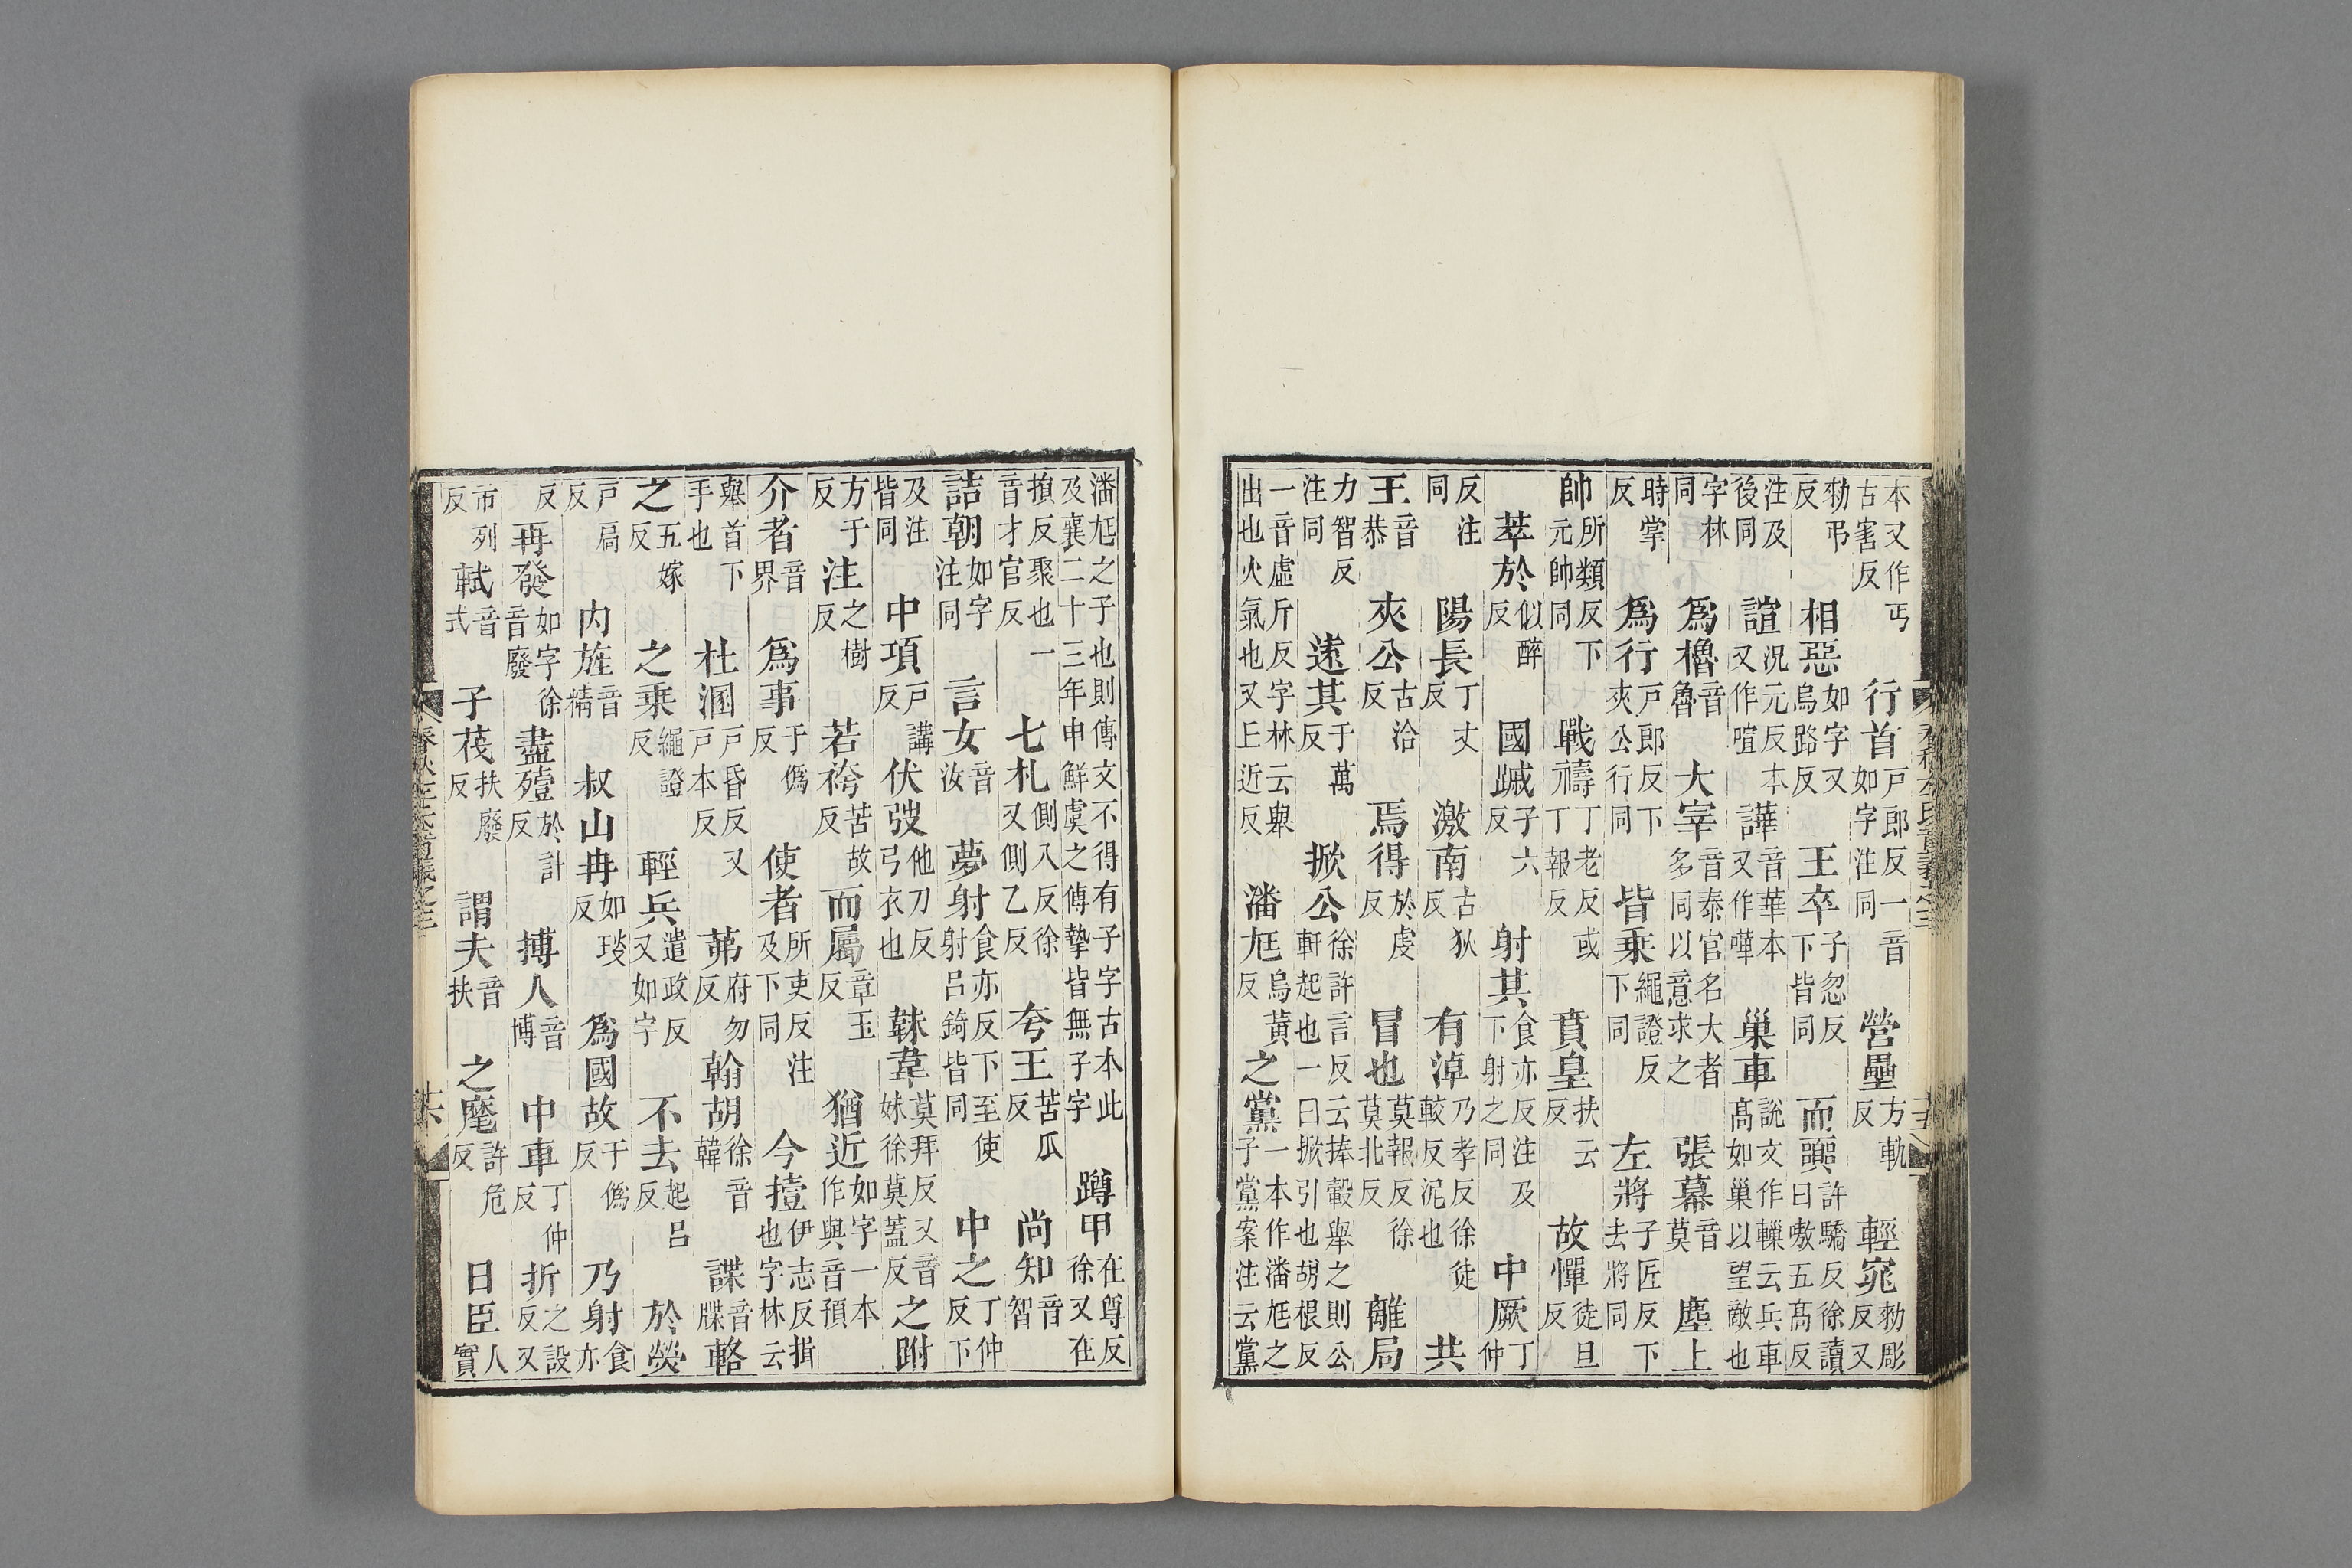 本又作丐古害反 行首戶郎反一音如字注同 營壘方軌反 輕窕勑彫反又
勑弔反 相惡如字又烏路反 王卒子忽反下皆同 而嚻許驕反徐讀曰嗷五髙反
注及後同 諠況元反本又作喧 譁音華本又作嘩 巢車說文作轈云兵車髙如巢以望敵也
字林同 爲櫓音魯 大宰音泰官名大者多同以意求之 張幕音莫 塵上
時掌反 爲行戶郎反下夾公行同 皆乗繩證反下同 左將子匠反下去將同
帥所類反下元帥同 戰禱丁老反或丁報反 賁皇扶云反 故憚徒旦反
萃於似醉反 國䠞子六反 射其食亦反注及下射之同 中厥丁仲
反注同 陽長丁丈反 激南古狄反 有淖乃孝反徐徒較反泥也 共
王音恭 夾公古洽反 焉得於虔反 冒也莫報反徐莫北反 離局
力智反注同 逺其于萬反 掀公徐許言反云捧轂舉之則公軒起也一曰掀引也胡根反
一音虛斤反字林云舉出也火氣也又丘近反 潘尫烏黃反 之黨一本作潘尫之子黨案注云黨
潘尫之子也則傳文不得有子字古本此及襄二十三年申鮮虞之傳摯皆無子字 蹲甲在尊反徐又在
損反聚也一音才官反 七札側入反徐又側乙反 夸王苦瓜反 尚知音智
詰朝如字注同 言女音汝 夢射食亦反下至使射呂錡皆同 中之丁仲反下
及注皆同 中項戶講反 伏弢他刀反弓衣也 韎韋莫拜反又音妹徐莫蓋反 之跗
方于反 注之樹反 若袴苦故反 而屬章玉反 猶近如字一本作與音預
介者音界 爲事于僞反 使者所吏反注及下同 今撎伊志反揖也字林云
舉首下手也 杜溷戶昏反又戶本反 茀府勿反 翰胡徐音韓 諜音牒 輅
之五嫁反 之乗繩證反 輕兵遣政反又如字 不去起呂反 於熒
戶扃反 内旌音精 叔山冉如琰反 爲國故于僞反 乃射食亦
反 再發如字徐音廢 盡殪於計反 搏人音博 中車丁仲反 折之設反又
市列反 軾音式 子茷扶廢反 謂夫音扶 之麾許危反 日臣人實